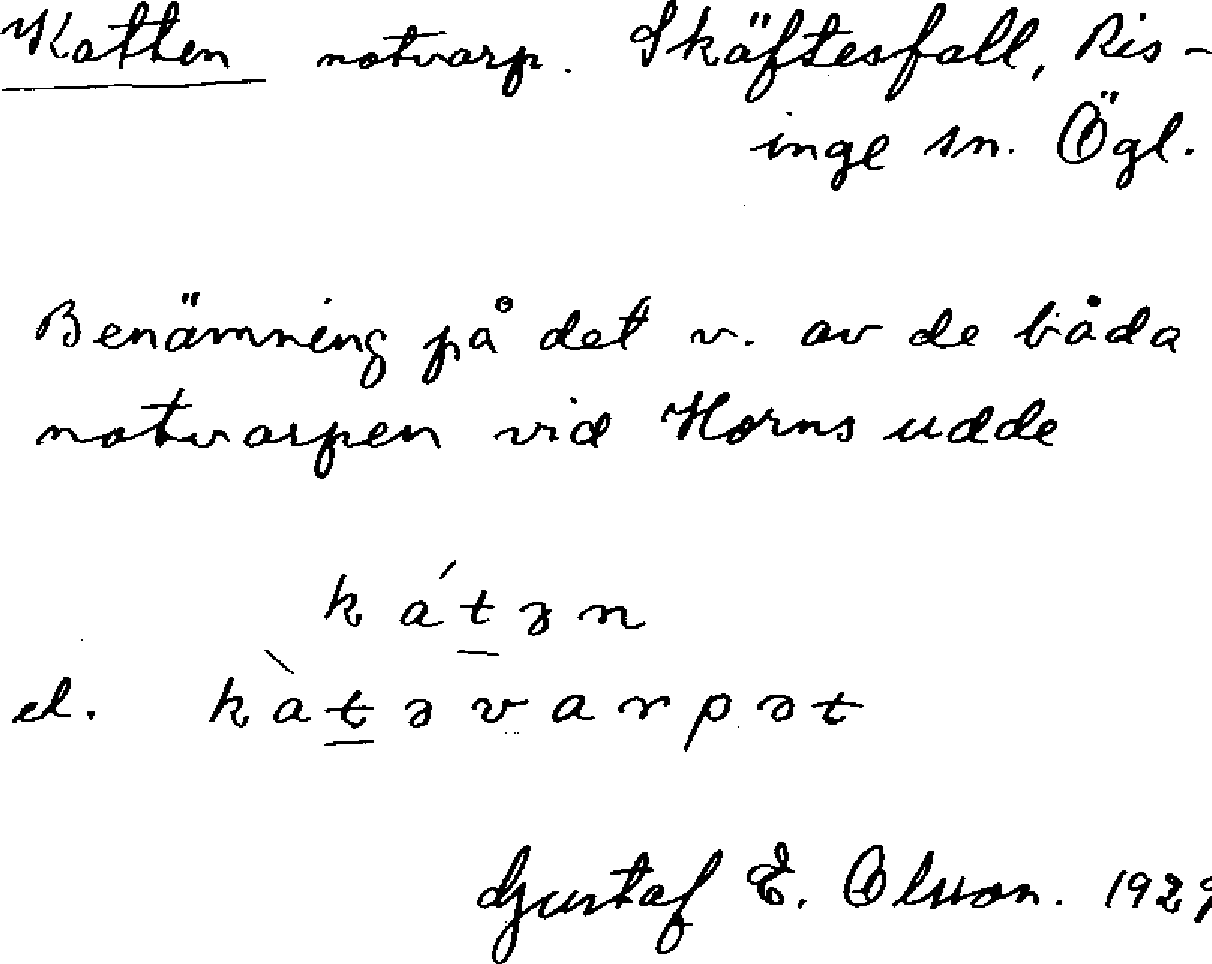 Katten notvarp. Skäftesfall, Ris-
inge sn. Ögl.
Benämning på det v. av de båda
notvarpen vid Horns udde
kát̲ən
el. kàt̲əvarpət
Gustaf E. Olsson. 1929